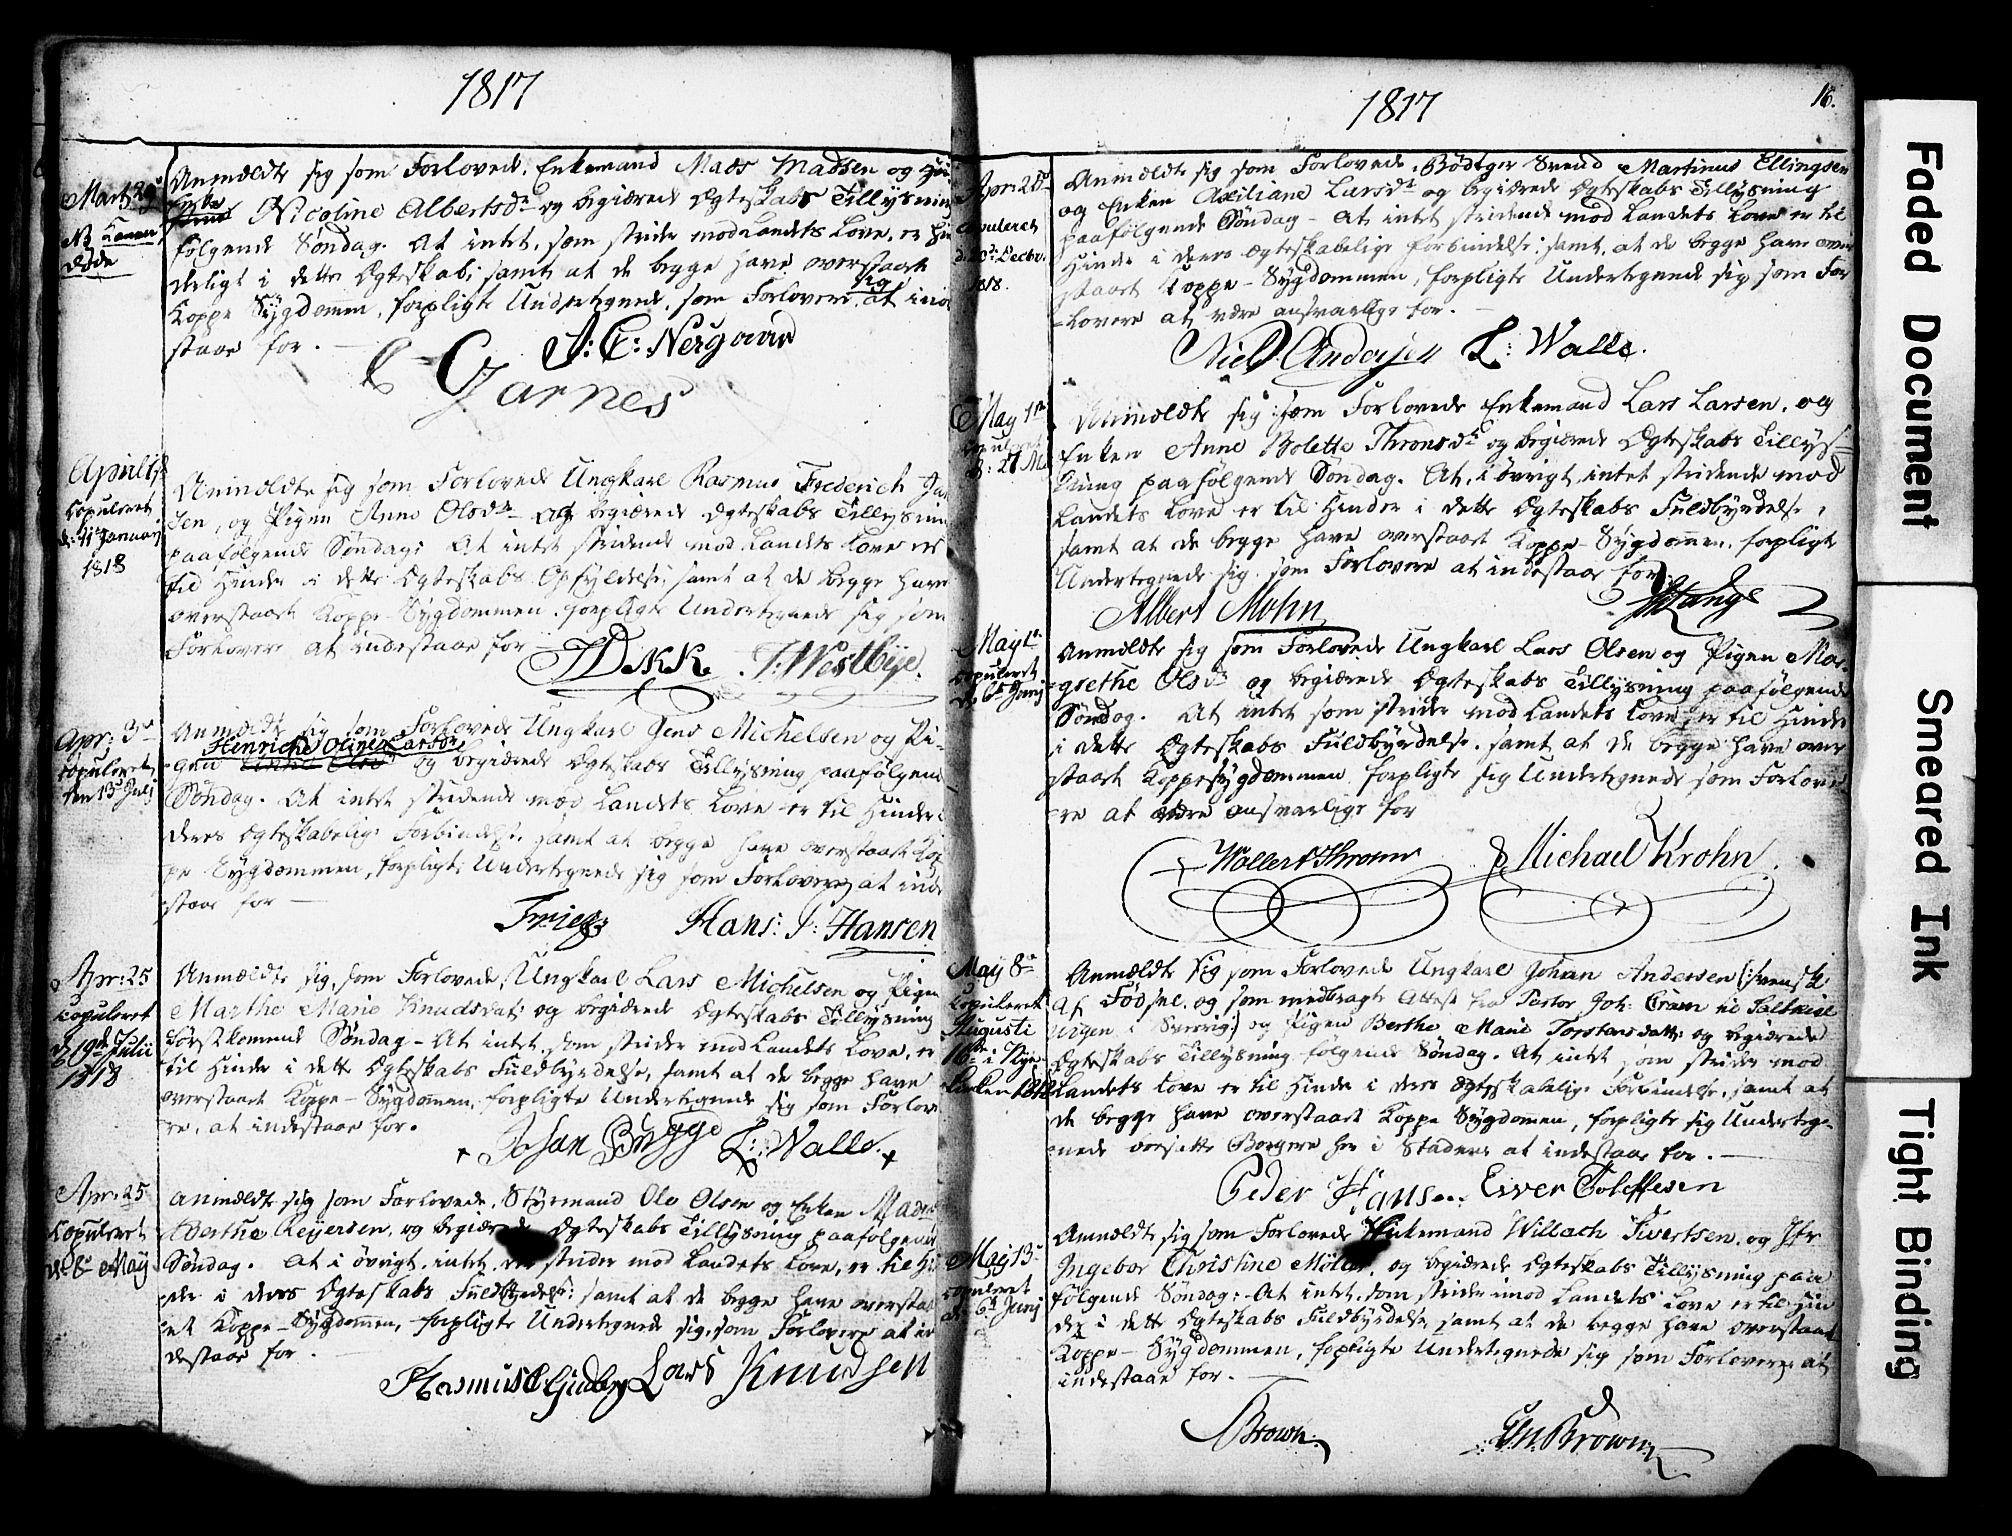 1817
Mart 29
NB Konen
døde
Anmældte sig som Forlovede, Enkemand Mads Madsen og
Nicoline Albertsdr og begiærede Ægteskabs Tillysning
følgende Søndag. At intet, som strider mod Landets Love, er
derligt i dette Ægteskab, samt at de begge have overstaaet
Koppe Sygdommen, forpligte Undertegnede, som Forlovere, sig at inde
staae for.
J: C: Nergaard
C Garnes
April 1
Copuleret
d: 11 Januarj
1818
Anmældte sig som Forlovede Ungkarl Rasmus Frederich
sen, og Pigen Anne Olsdr og begiærede Ægteskabs Tillysning
paafølgende Søndag; At intet stridende mod Landets Love er
til Hinder i dette Ægteskabs Opfyldelse, samt at de begge have
overstaaet Koppe-Sygdommen, forpligte Undertegnede sig som
Forlovere at indestaae for
J: Westbye.
Apr: 3
Copuleret
den 13 Julj
Anmældte sig som Forlovede Ungkarl Jens Michelsen og Pi-
Henriche Oline Larsdr
gen og begiærede Ægteskabs Tillysning paafølgende
Søndag. At intet stridende mod Landets Love er til Hinder i
deres Ægteskabelige Forbindelse, samt at begge have overstaaet Kop
pe Sygdommen, forpligte Undertegnede sig som Forlovere, at inde
staae for
Hans: J: Hansen
Apr: 25
Copuleret
d 19de Julii
1818
Anmældte sig, som Forlovede, Ungkarl Lars Michelsen og Pigen
Marthe Marie Knudsdatr og begiærede Ægteskabs Tillysning
førstkommende Søndag - At intet, som strider mod Landets Love, er
til Hinder i dette Ægteskabs Fuldbyrdelse, samt at de begge have
overstaaet Koppe-Sygdommen, forpligte Undertegnede sig som Forlove
re, at indestaae for.
Johan Brygge L: Walle
Apr: 25
Copuleret
d: 8 May
Anmældte sig som Forlovede, Styrmand Ole Olsen og Enken Madme
Berthe Reyersen, og begiærede Ægteskabs Tillysning paafølgende
Søndag. At i øvrigt, intet, strider mod Landets Love, er til Hin
der i deres Ægteskabs Fuldbyrdelse; samt at de begge have overstaa
et Koppe-Sygdommen, forpligte Undertegnede sig, som Forlovere at in
destaae for.
Lars Knudsen
1817
16.
Apr: 28
Copuleret
Decbr.
1818.
Anmældte sig som Forlovede, Bødtger Svend Martinus Ellingsen
og Enken Axiliane Larsdr og begiærede Ægteskabs Tillysning
paafølgende Søndag - At intet stridende mod Landets Love er til
Hinder i deres ægteskabelige Forbindelse, samt, at de begge have over
staaet Koppe-Sygdommen, forpligte Undertegnede sig som For
-lovere at være ansvarlige for. -
Niels Andersen L: Walle.
May 1
Copuleret
d: 21 M
Anmældte sig som Forlovede Enkemand Lars Larsen, og
Enken Anne Bolette Thronsdr og begiærede Ægteskabs Tillys-
ning paafølgende Søndag. At, i øvrigt, intet stridende mod
Landets Love er til Hinder i dette Ægteskabs Fuldbyrdelse,
samt at de begge have overstaaet Koppe-Sygdommen, forpligte
Undertegnede sig som Forlovere at indestaae for.
Albert Mohn Lange
May 1
Copuleret
d: 6 Junj
Anmældte sig som Forlovede Ungkarl Lars Olsen og Pigen Mar-
grethe Olsdr og begiærede Ægteskabs Tillysning paafølgende
Søndag. At intet som strider mod Landets Love, er til Hinder
i dette Ægteskabs Fuldbyrdelse, samt at de begge have over
staaet Koppesygdommen, forpligte sig Undertegnede som Forlove
re at være ansvarlige for
Michael Krohn.
May 8
Copuleret
Augusti
16 i Nye
Kirken 1818
Anmældte sig som Forlovede Ungkarl Johan Andersen (: svensk
af Fødsel, og som medbragte Attest fra Pastor Joh: Cram
i Sverrig:) og Pigen Berthe Marie Torstensdatter og begiærede
Ægteskabs Tillysning følgende Søndag. At intet, som strider mod
Landets Love er til Hinder i deres ægteskabelige Forbindelse, samt at
de begge have overstaaet Koppe Sygdommen, forpligte sig Underteg-
nede Borgere her i Staden at indestaae for. -
Peder Hansen Eiver Tolleffesen
May 13
Copuleret
d: 6 Junj
Anmældte sig som Forlovede Enkemand Willach Sivertsen, og Jfr
Ingebor Christine Møller, og begiærede Ægteskabs Tillysning paa
følgende Søndag; At intet, som strider imod Landets Love er til Hin
der i dette Ægteskabs Fuldbyrdelse, samt at de begge have overstaaet
Koppe-Sygdommen, forpligte Undertegnede sig som Forlovere, at
indestaae for. -
Brown. Brown
Faded Document
Smeared Ink
Tight Binding